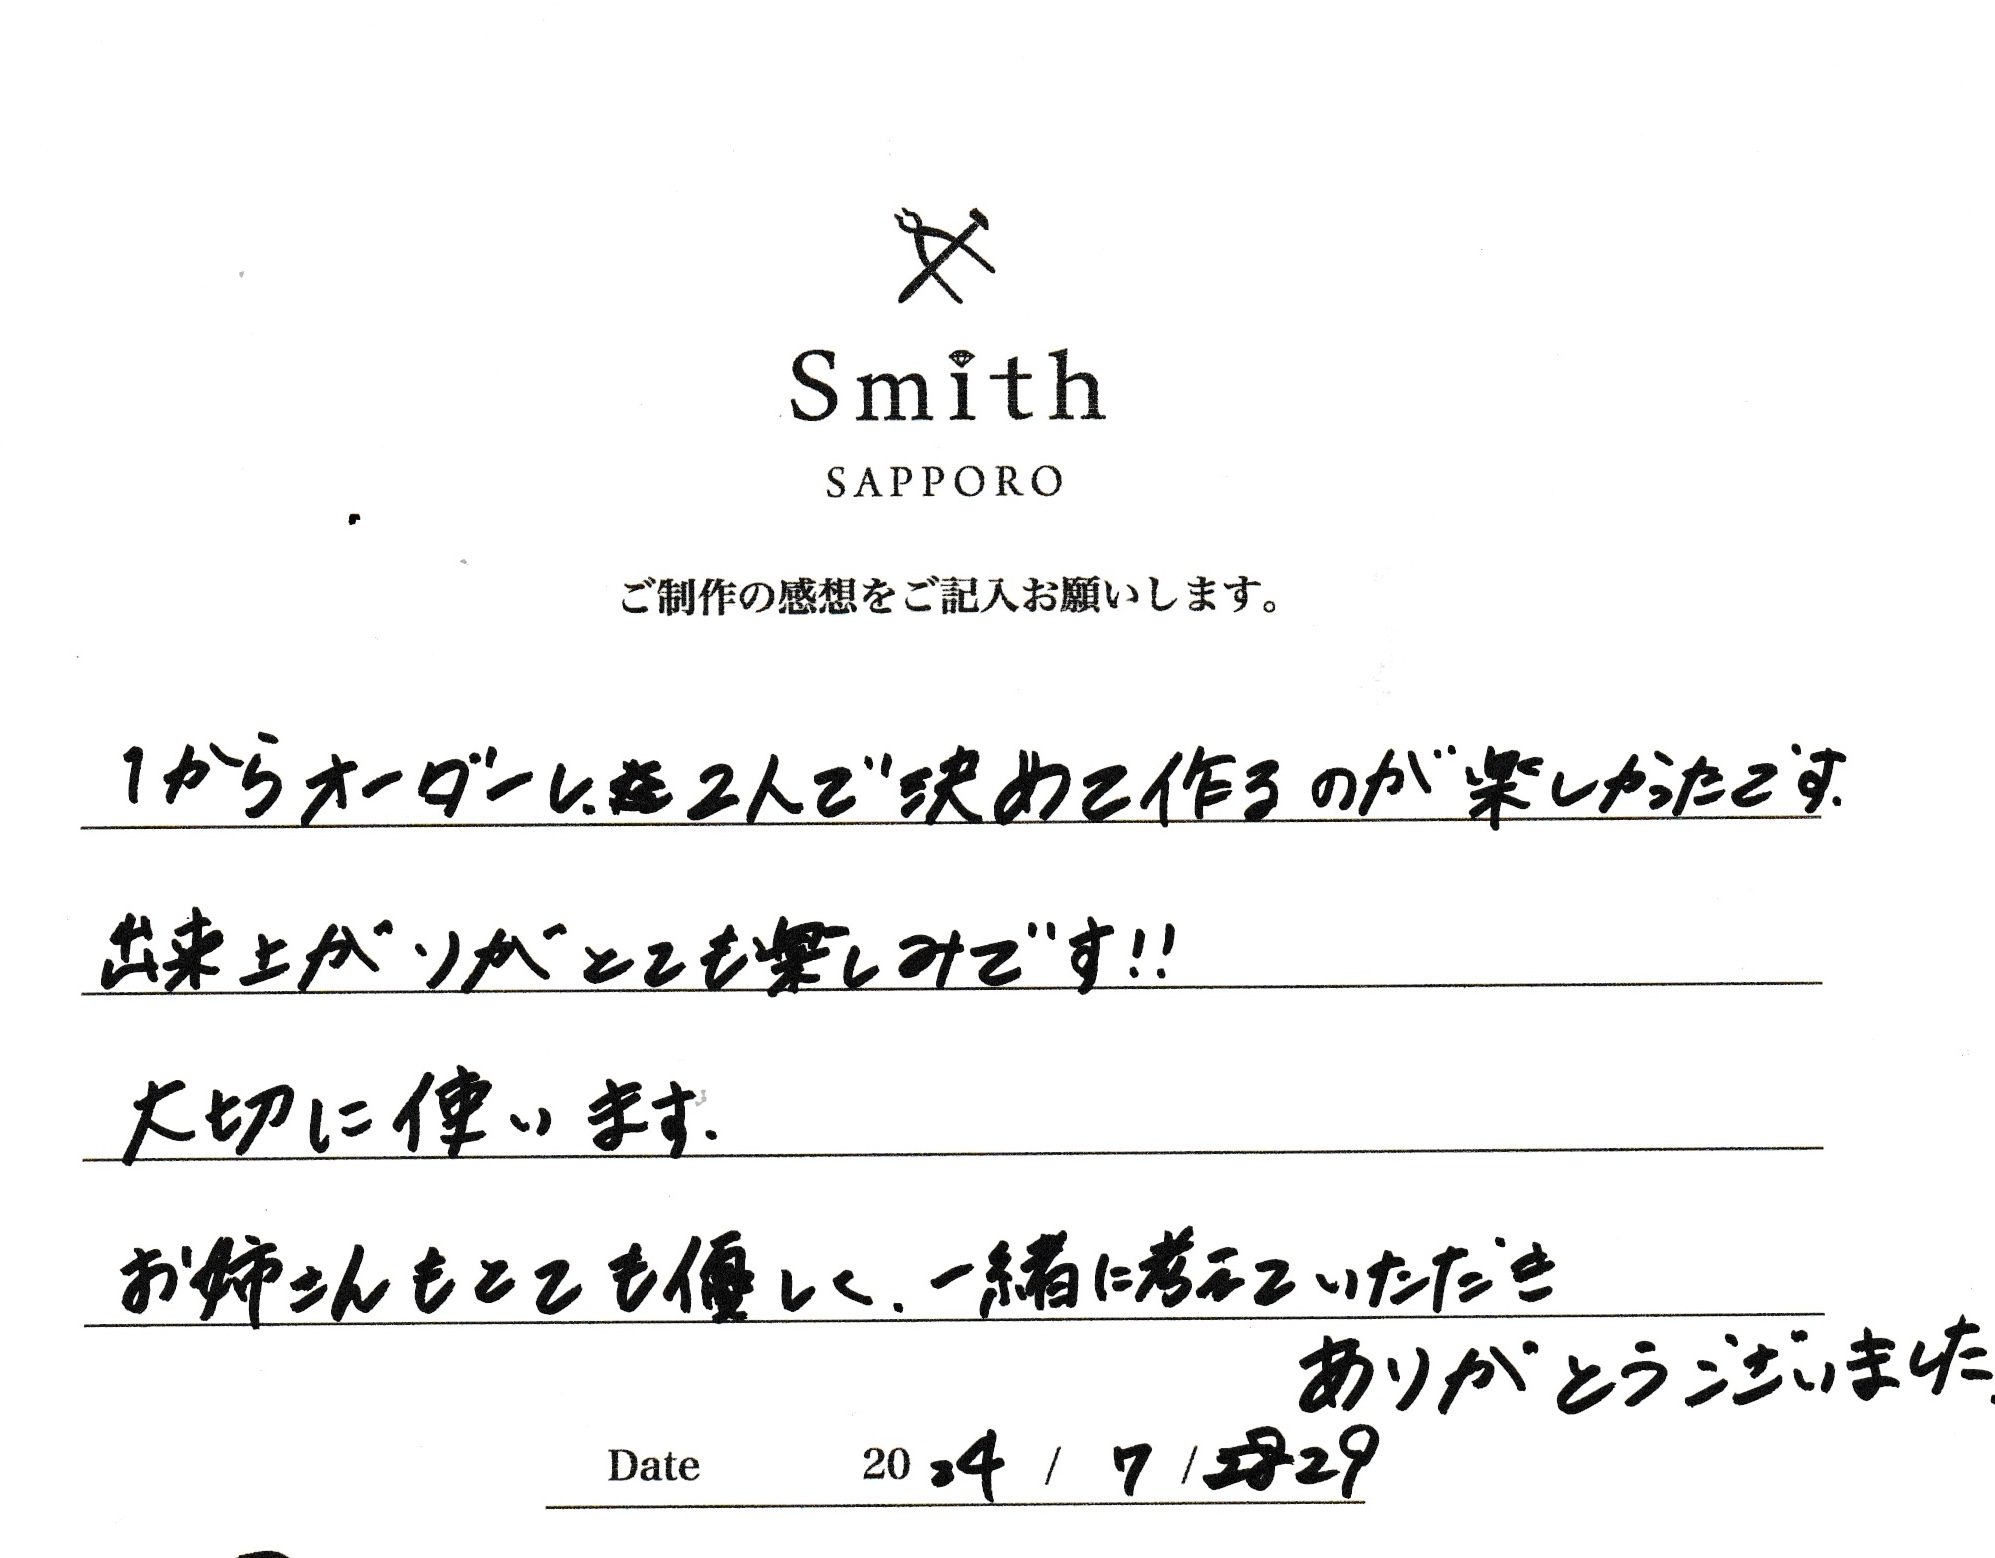 Smith
SAPPORO
ご制作の感想をご記入お願いします。
1からオーダーし、2人で決めて作るのが楽しかったです.
出来上がりがとても楽しみです!!
大切に使います.
お姉さんもとても優しく、一緒に考えていただき
ありがとうございました.
Date 2024 / 7 / 29